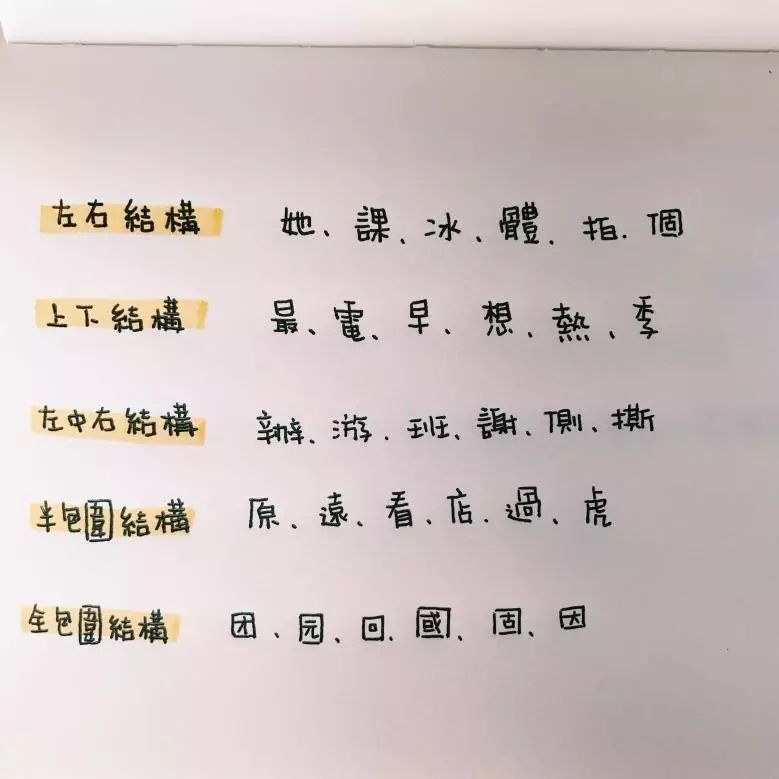 左右結構 她、課、冰、體、拍、個
上下結構 最、電、早、想、熱、季
左中右結構 辦、游、班、謝、側、撕
半包圍結構 原、遠、看、店、過、虎
全包圍結構 团、园、回、國、固、因